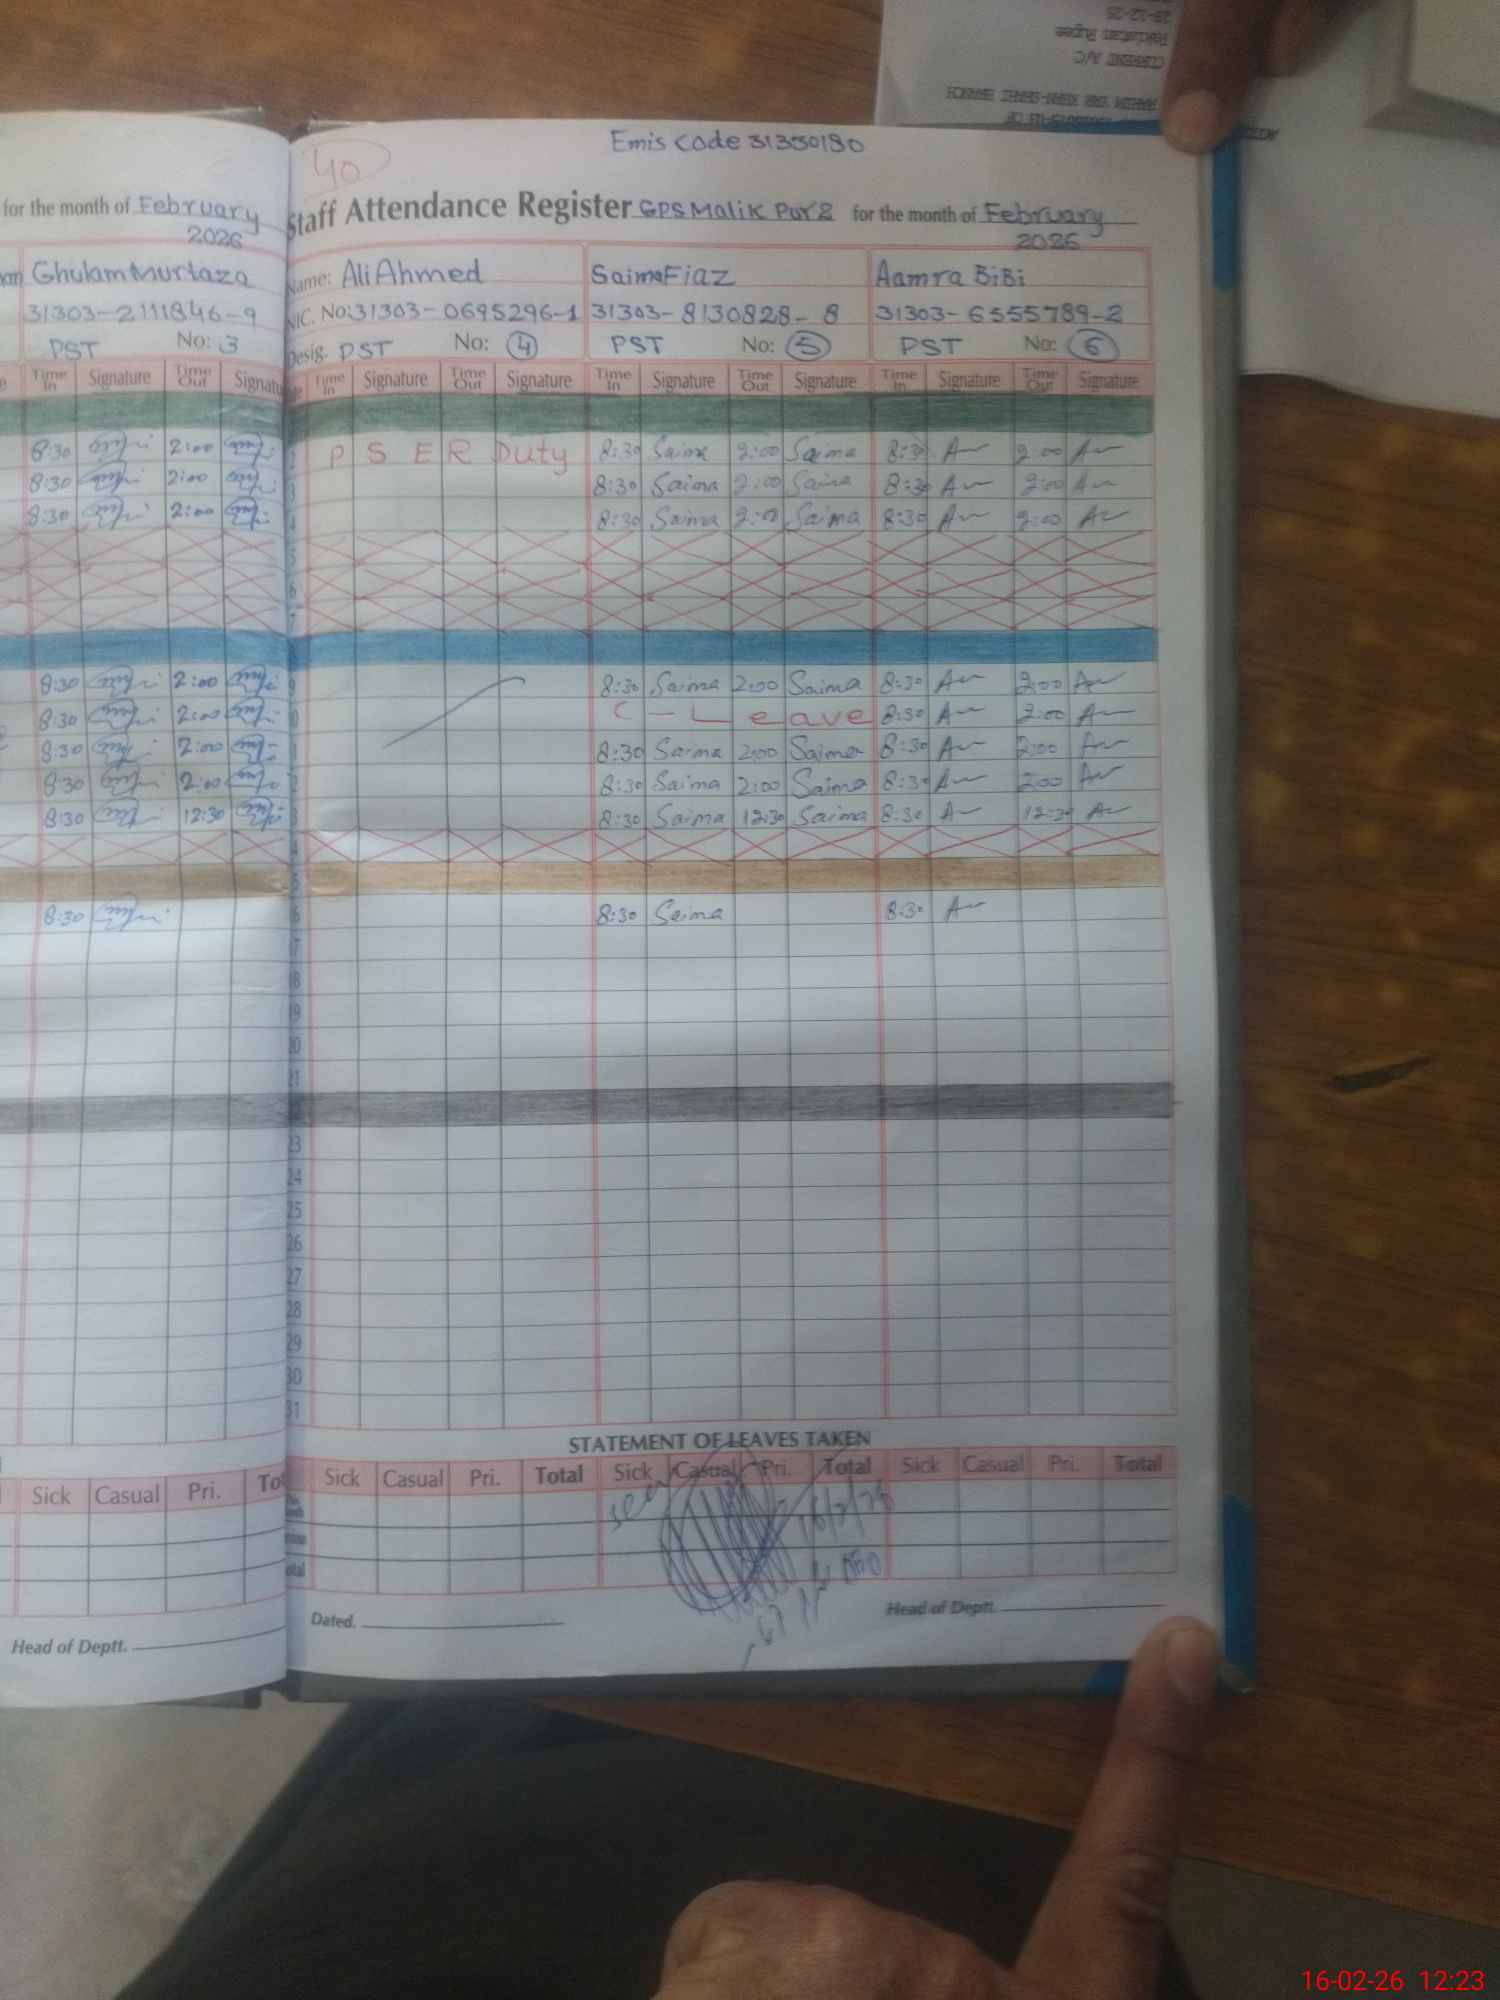 29-12-25
Pakistan Rupee
CURRENT A/C
Emis Code 31330180
40
for the month of February
2026
Staff Attendance Register GPS Malik Pur 2 for the month of February
2026
Ghulam Murtaza
Name: Ali Ahmed Saima Fiaz Aamra BiBi
31303-2111846-9
NIC. No: 31303-0695296-1 31303-8130828-8 31303-6555789-2
PST No: 3
Desig. PST No: 4 PST No: 5 PST No: 6
Time In Signature Time Out Signature Time In Signature Time Out Signature Time In Signature Time Out Signature Time In Signature Time Out Signature
8:30 2:00 P S E R Duty 8:30 Saima 2:00 Saima 8:30 2:00
8:30 2:00 3 8:30 Saima 2:00 Saima 8:30 2:00
8:30 2:00 4 8:30 Saima 2:00 Saima 8:30 2:00
5
6
7
8:30 2:00 9 8:30 Saima 2:00 Saima 8:30 2:00
8:30 2:00 10 C - Leave 8:30 2:00
8:30 2:00 8:30 Saima 2:00 Saima 8:30 2:00
8:30 2:00 8:30 Saima 2:00 Saima 8:30 2:00
8:30 12:30 8:30 Saima 12:30 Saima 8:30 12:30
8:30 8:30 Saima 8:30
17
18
19
20
21
23
24
25
26
27
28
29
30
31
STATEMENT OF LEAVES TAKEN
Sick Casual Pri. Sick Casual Pri. Total Sick Casual Pri. Total Sick Casual Pri. Total
16/2/26
Dated. Head of Deptt.
Head of Deptt.
16-02-26 12:23